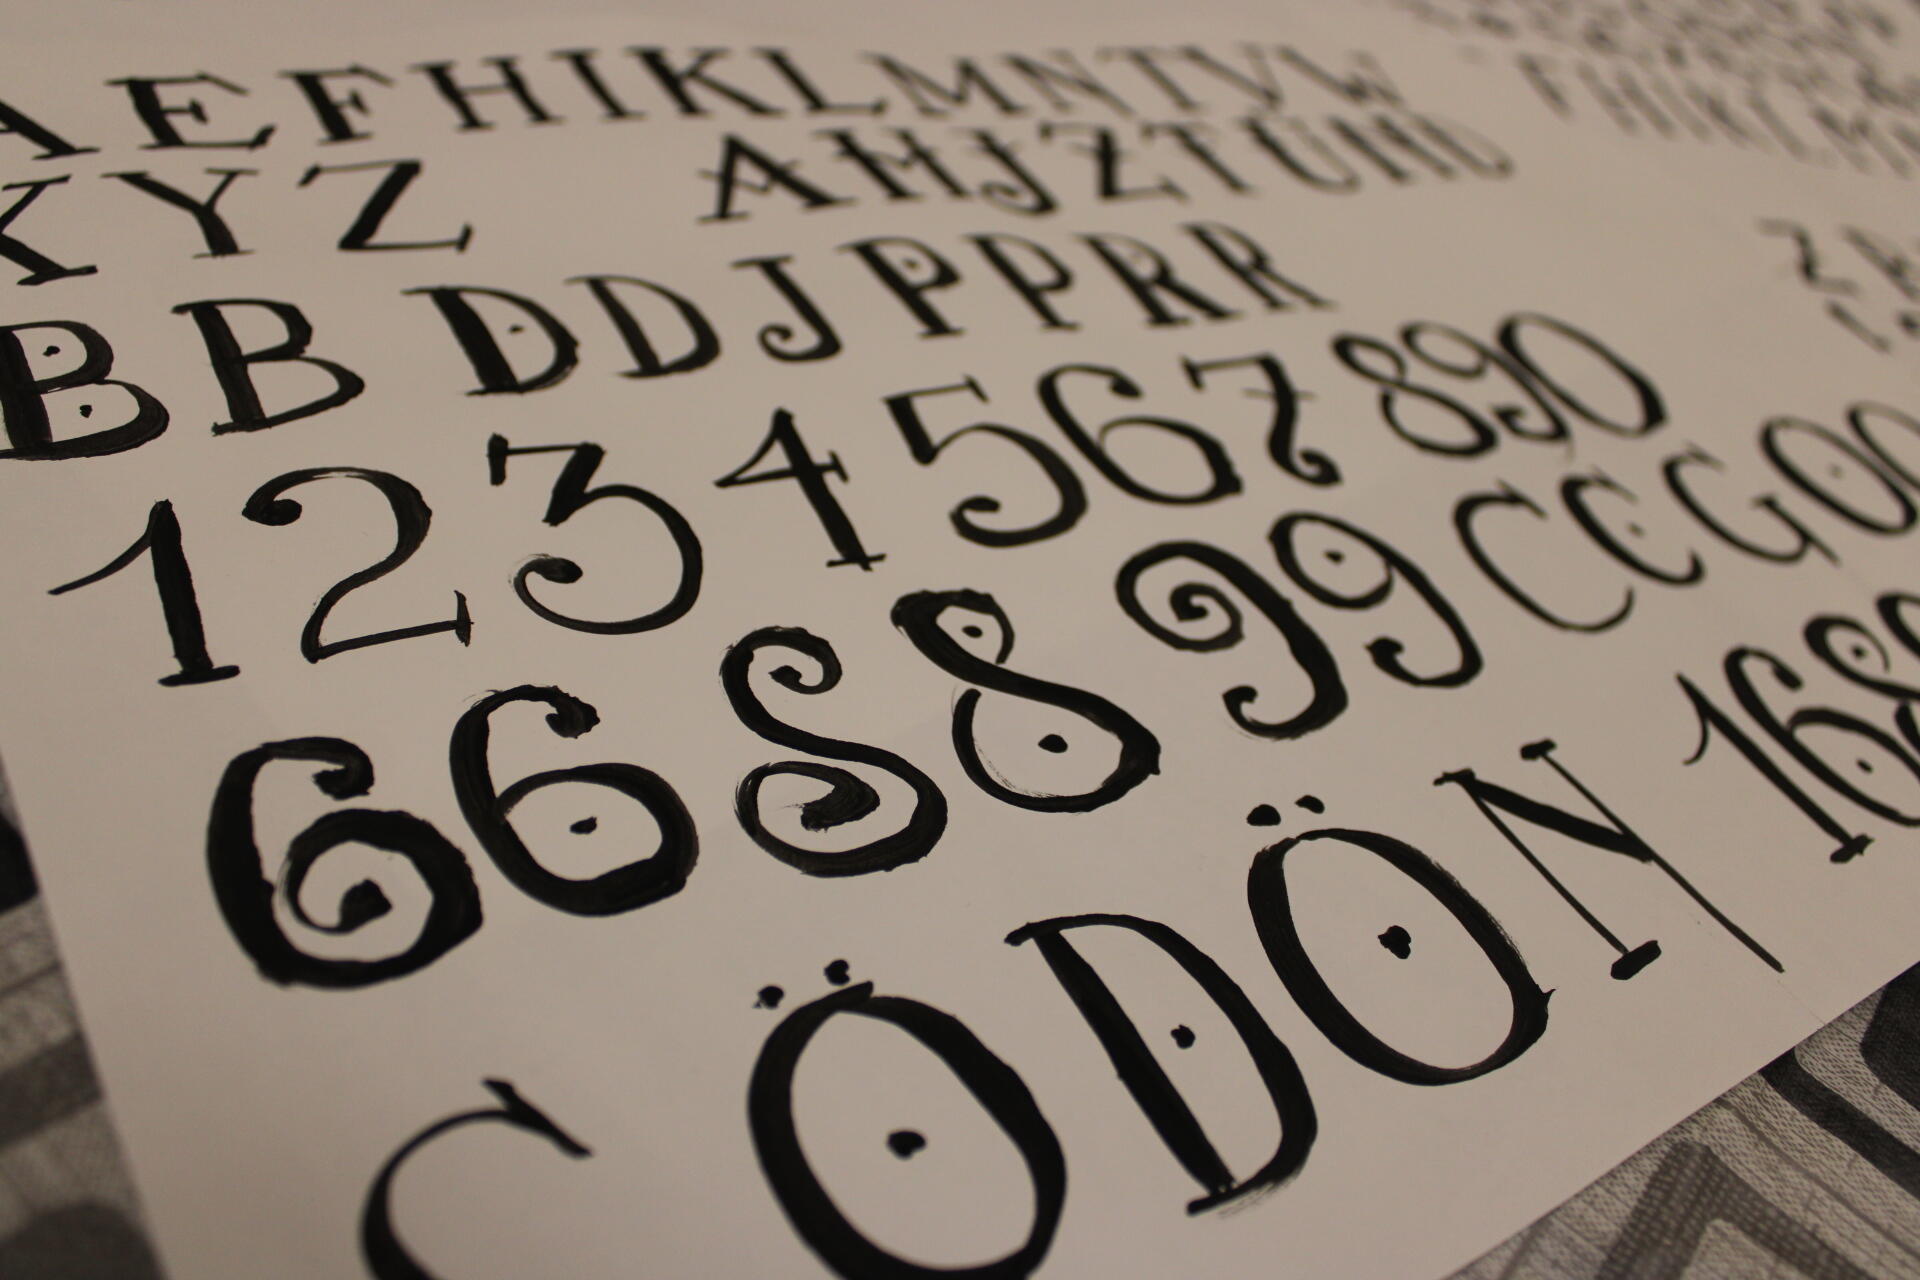 A E F H I K L M N T V W
X Y Z A H J Z T U N D
B B D D J P P R R
1 2 3 4 5 6 7 8 9 0
6 6 8 8 9 9 C C G O O
C Ö D Ö N 168
F H I K L M